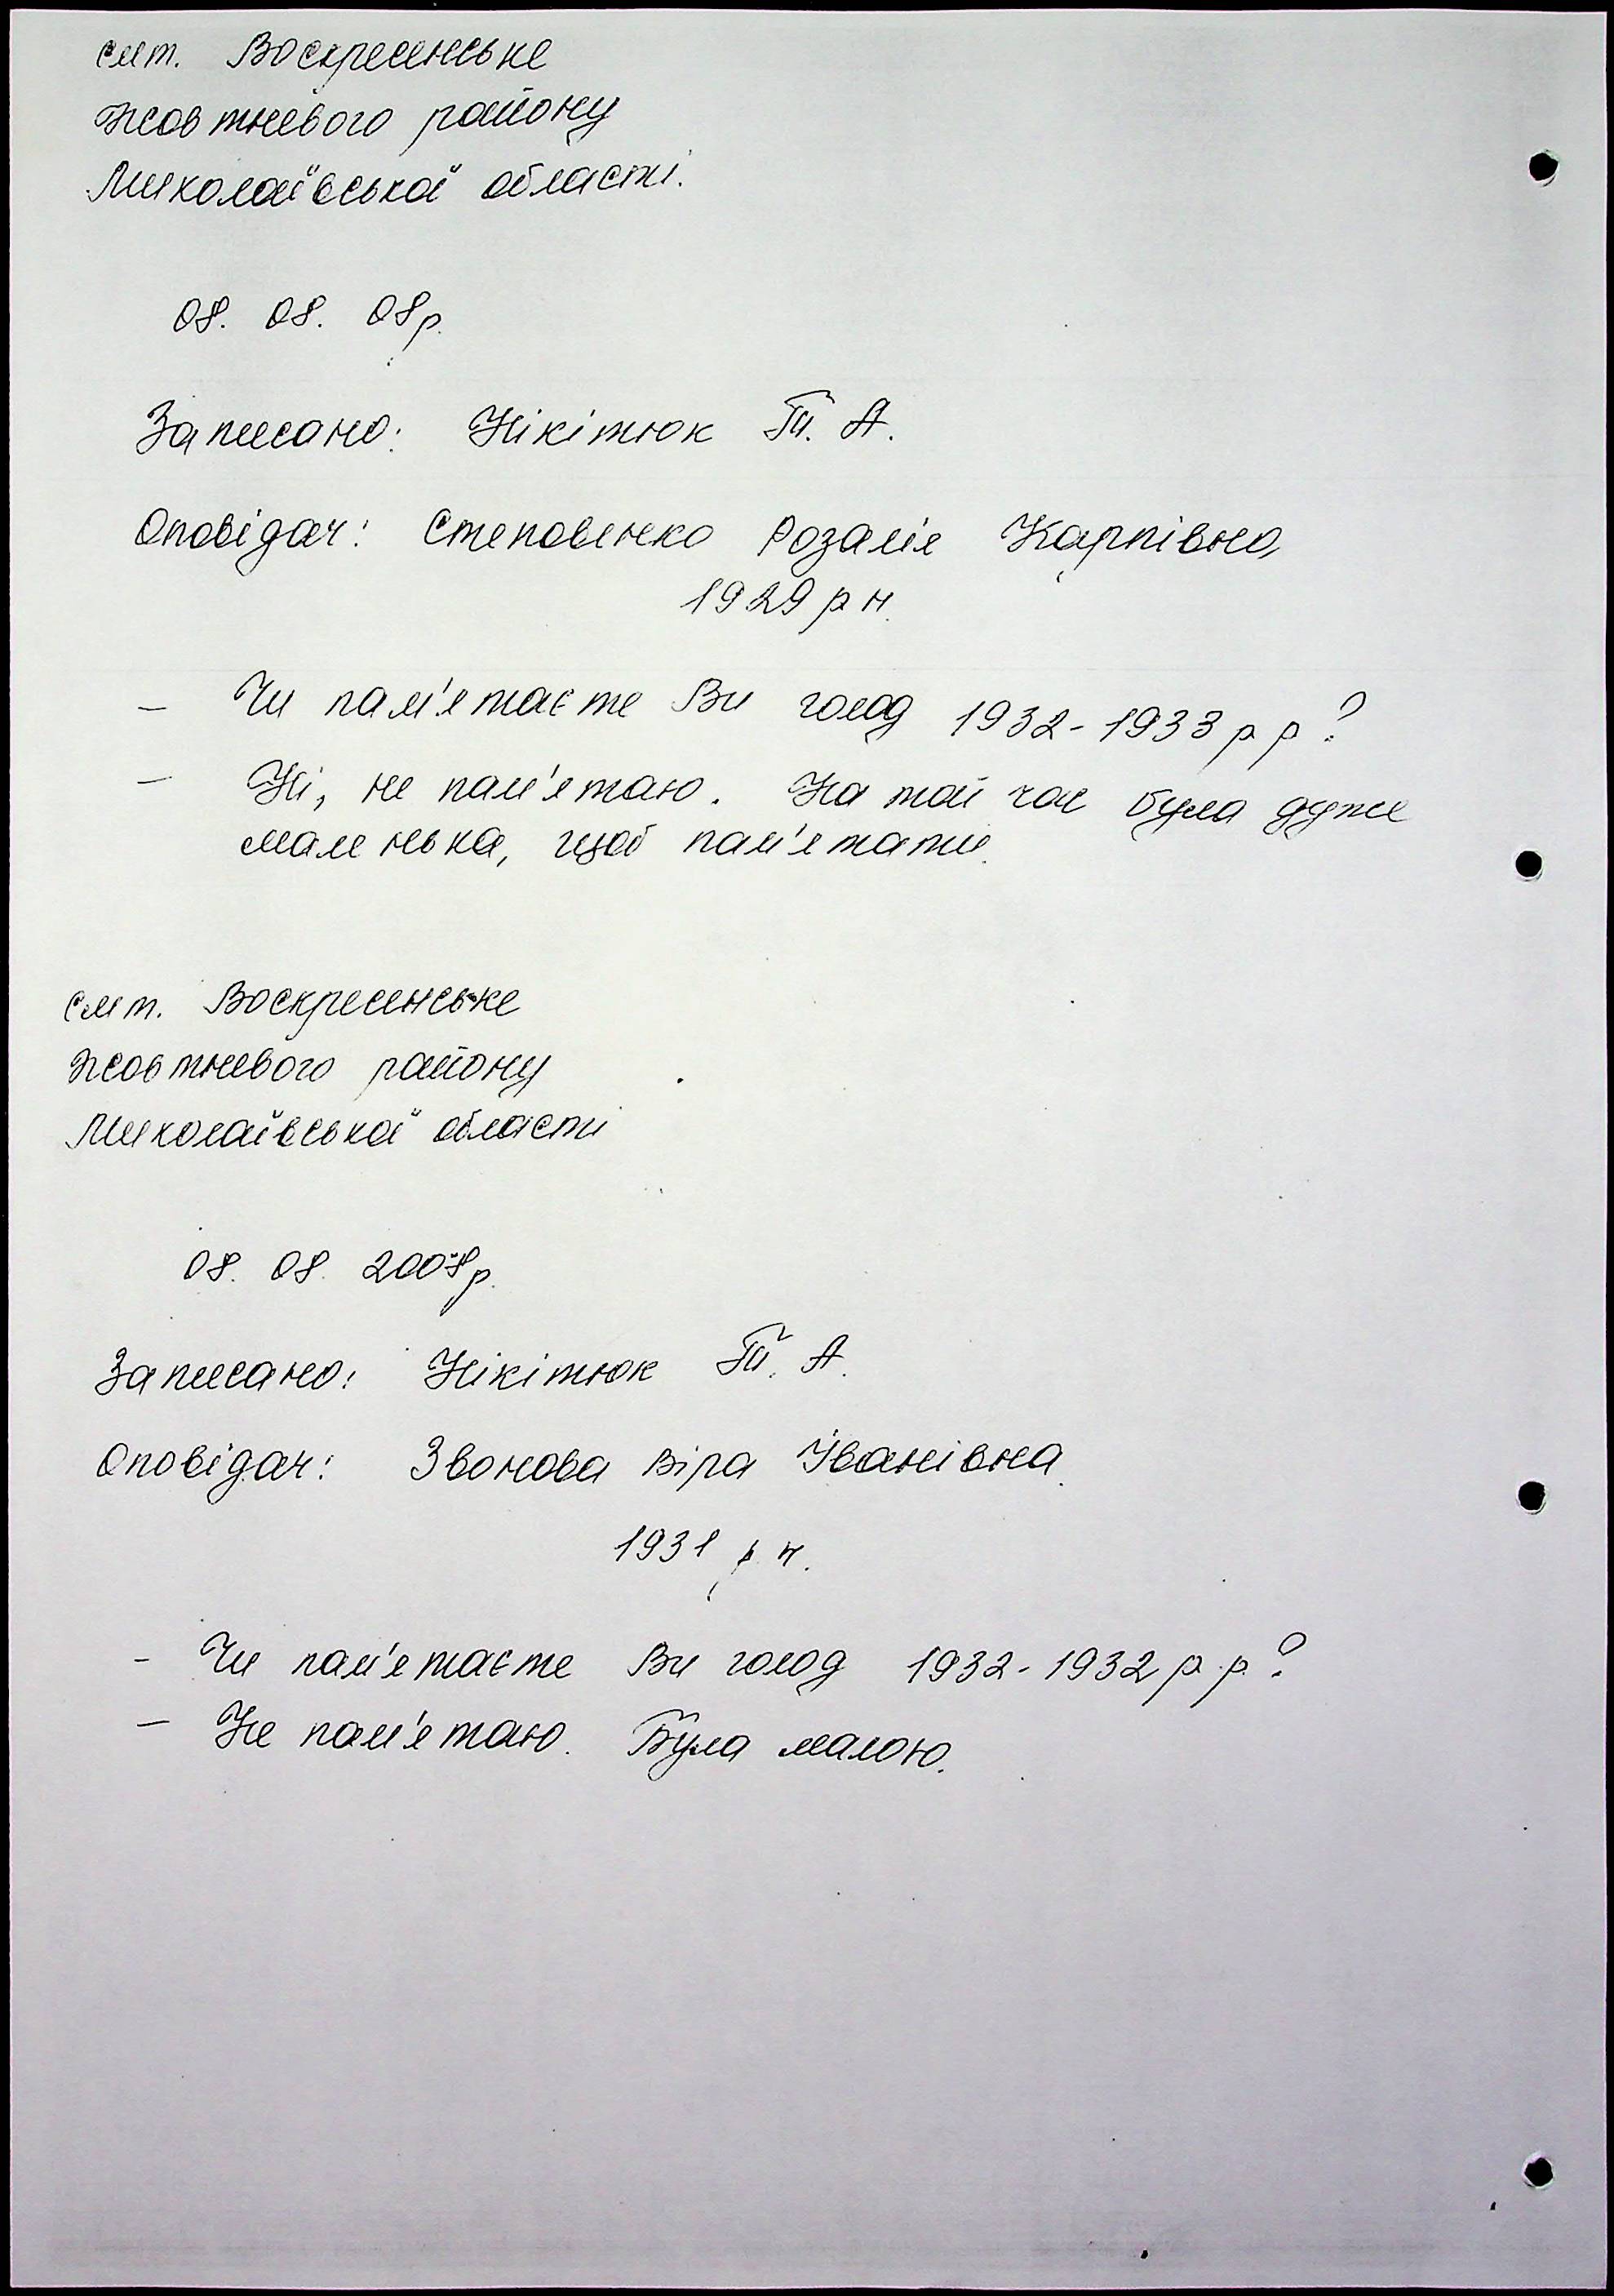 смт. Воскресенське
Жовтневого району
Миколаївської області.
08. 08. 08р.
Записано: Нікітюк Т. А.
Оповідач: Степовенко Розалія Карпівна,
1929 р н.
– Чи пам'ятаєте Ви голод 1932-1933 р р?
– Ні, не пам'ятаю. На той час була дуже
маленька, щоб пам'ятати.
смт. Воскресенське
Жовтневого району
Миколаївської області
08. 08. 2008р.
Записано: Нікітюк Т. А.
Оповідач: Звонова Віра Іванівна.
1931 р. н.
- Чи пам'ятаєте Ви голод 1932-1932 р. р.?
– Не пам'ятаю. Була малою.